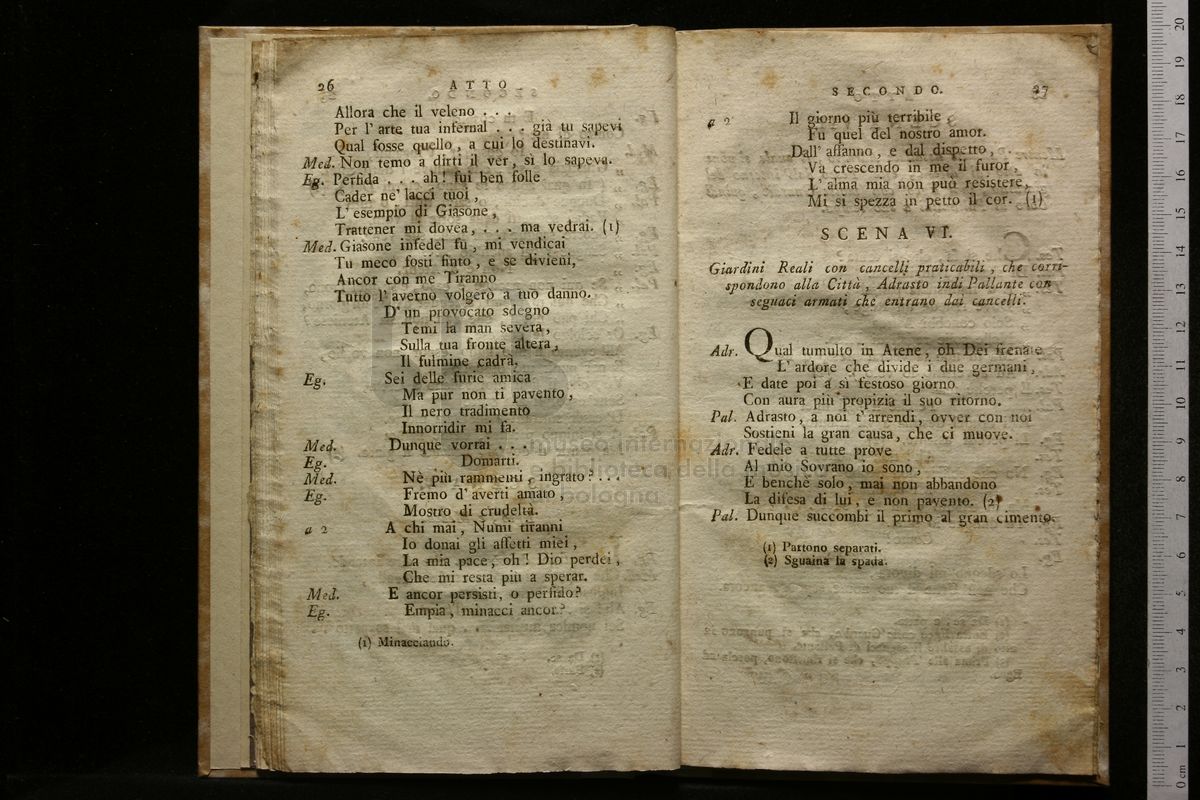 26 ATTO
Allora che il veleno . . .
Per l' arte tua infernal . . . già tu sapevi
Qual fosse quello , a cui lo destinavi.
Med. Non temo a dirti il ver, sì lo sapeva.
Eg. Perfida . . . ah! fui ben folle
Cader ne' lacci tuoi ,
L' esempio di Giasone ,
Trattener mi dovea, . . . ma vedrai. (1)
Med. Giasone infedel fu , mi vendicai
Tu meco fosti finto , e se divieni,
Ancor con me Tiranno
Tutto l' averno volgerò a tuo danno.
D' un provocato sdegno
Temi la man severa ,
Sulla tua fronte altera ,
Il fulmine cadrà.
Eg. Sei delle furie amica
Ma pur non ti pavento ,
Il nero tradimento
Innorridir mi fa.
Med. Dunque vorrai . . .
Eg. Domarti.
Med. Nè più rammenti , ingrato ? . . .
Eg. Fremo d' averti amato ,
Mostro di crudeltà.
a 2 A chi mai , Numi tiranni
Io donai gli affetti miei ,
La mia pace , oh ! Dio perdei ,
Che mi resta più a sperar.
Med. E ancor persisti, o perfido?
Eg. Empia , minacci ancor?
(1) Minacciando.
SECONDO. 27
a 2 Il giorno più terribile ,
Fu quel del nostro amor.
Dall' affanno , e dal dispetto ,
Va crescendo in me il furor ,
L' alma mia non può resistere ,
Mi si spezza in petto il cor. (1)
SCENA VI.
Giardini Reali con cancelli praticabili , che corri-
spondono alla Città , Adrasto indi Pallante con
seguaci armati che entrano dai cancelli.
Adr. Qual tumulto in Atene , oh Dei frenate
L' ardore che divide i due germani ,
E date poi a sì festoso giorno
Con aura più propizia il suo ritorno.
Pal. Adrasto , a noi t' arrendi , ovver con noi
Sostieni la gran causa , che ci muove.
Adr. Fedele a tutte prove
Al mio Sovrano io sono ,
E benchè solo , mai non abbandono
La difesa di lui , e non pavento. (2)
Pal. Dunque succombi il primo al gran cimento.
(1) Partono separati.
(2) Sguaina la spada.
museo internazionale
e biblioteca della
bologna
0 cm 1 2 3 4 5 6 7 8 9 10 11 12 13 14 15 16 17 18 19 20